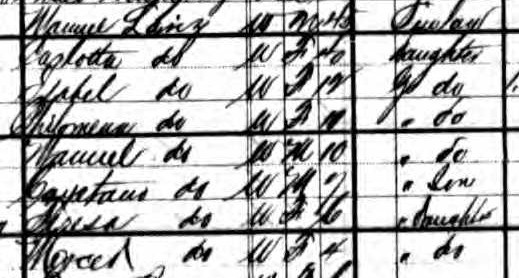 Manuel W M 45
Carlotta do W F daughter
Isabel do W F 12 G do
Philomena do W F 11 " do
Manuel do W M 10 " do
Cayetano do W M 7 " Son
Teresa do W F 6 " Daughter
Merced do W F 4 " do